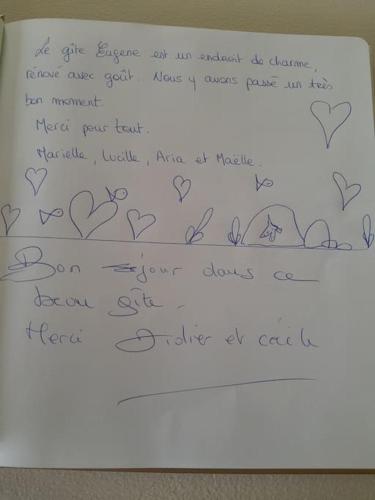 Le gîte Eugène est un endroit de charme,
rénové avec goût. Nous y avons passé un très
bon moment.
Merci pour tout.
Marielle, Lucille, Aria et Maëlle.
Bon séjour dans ce
beau gîte.
Merci Didier et cécile